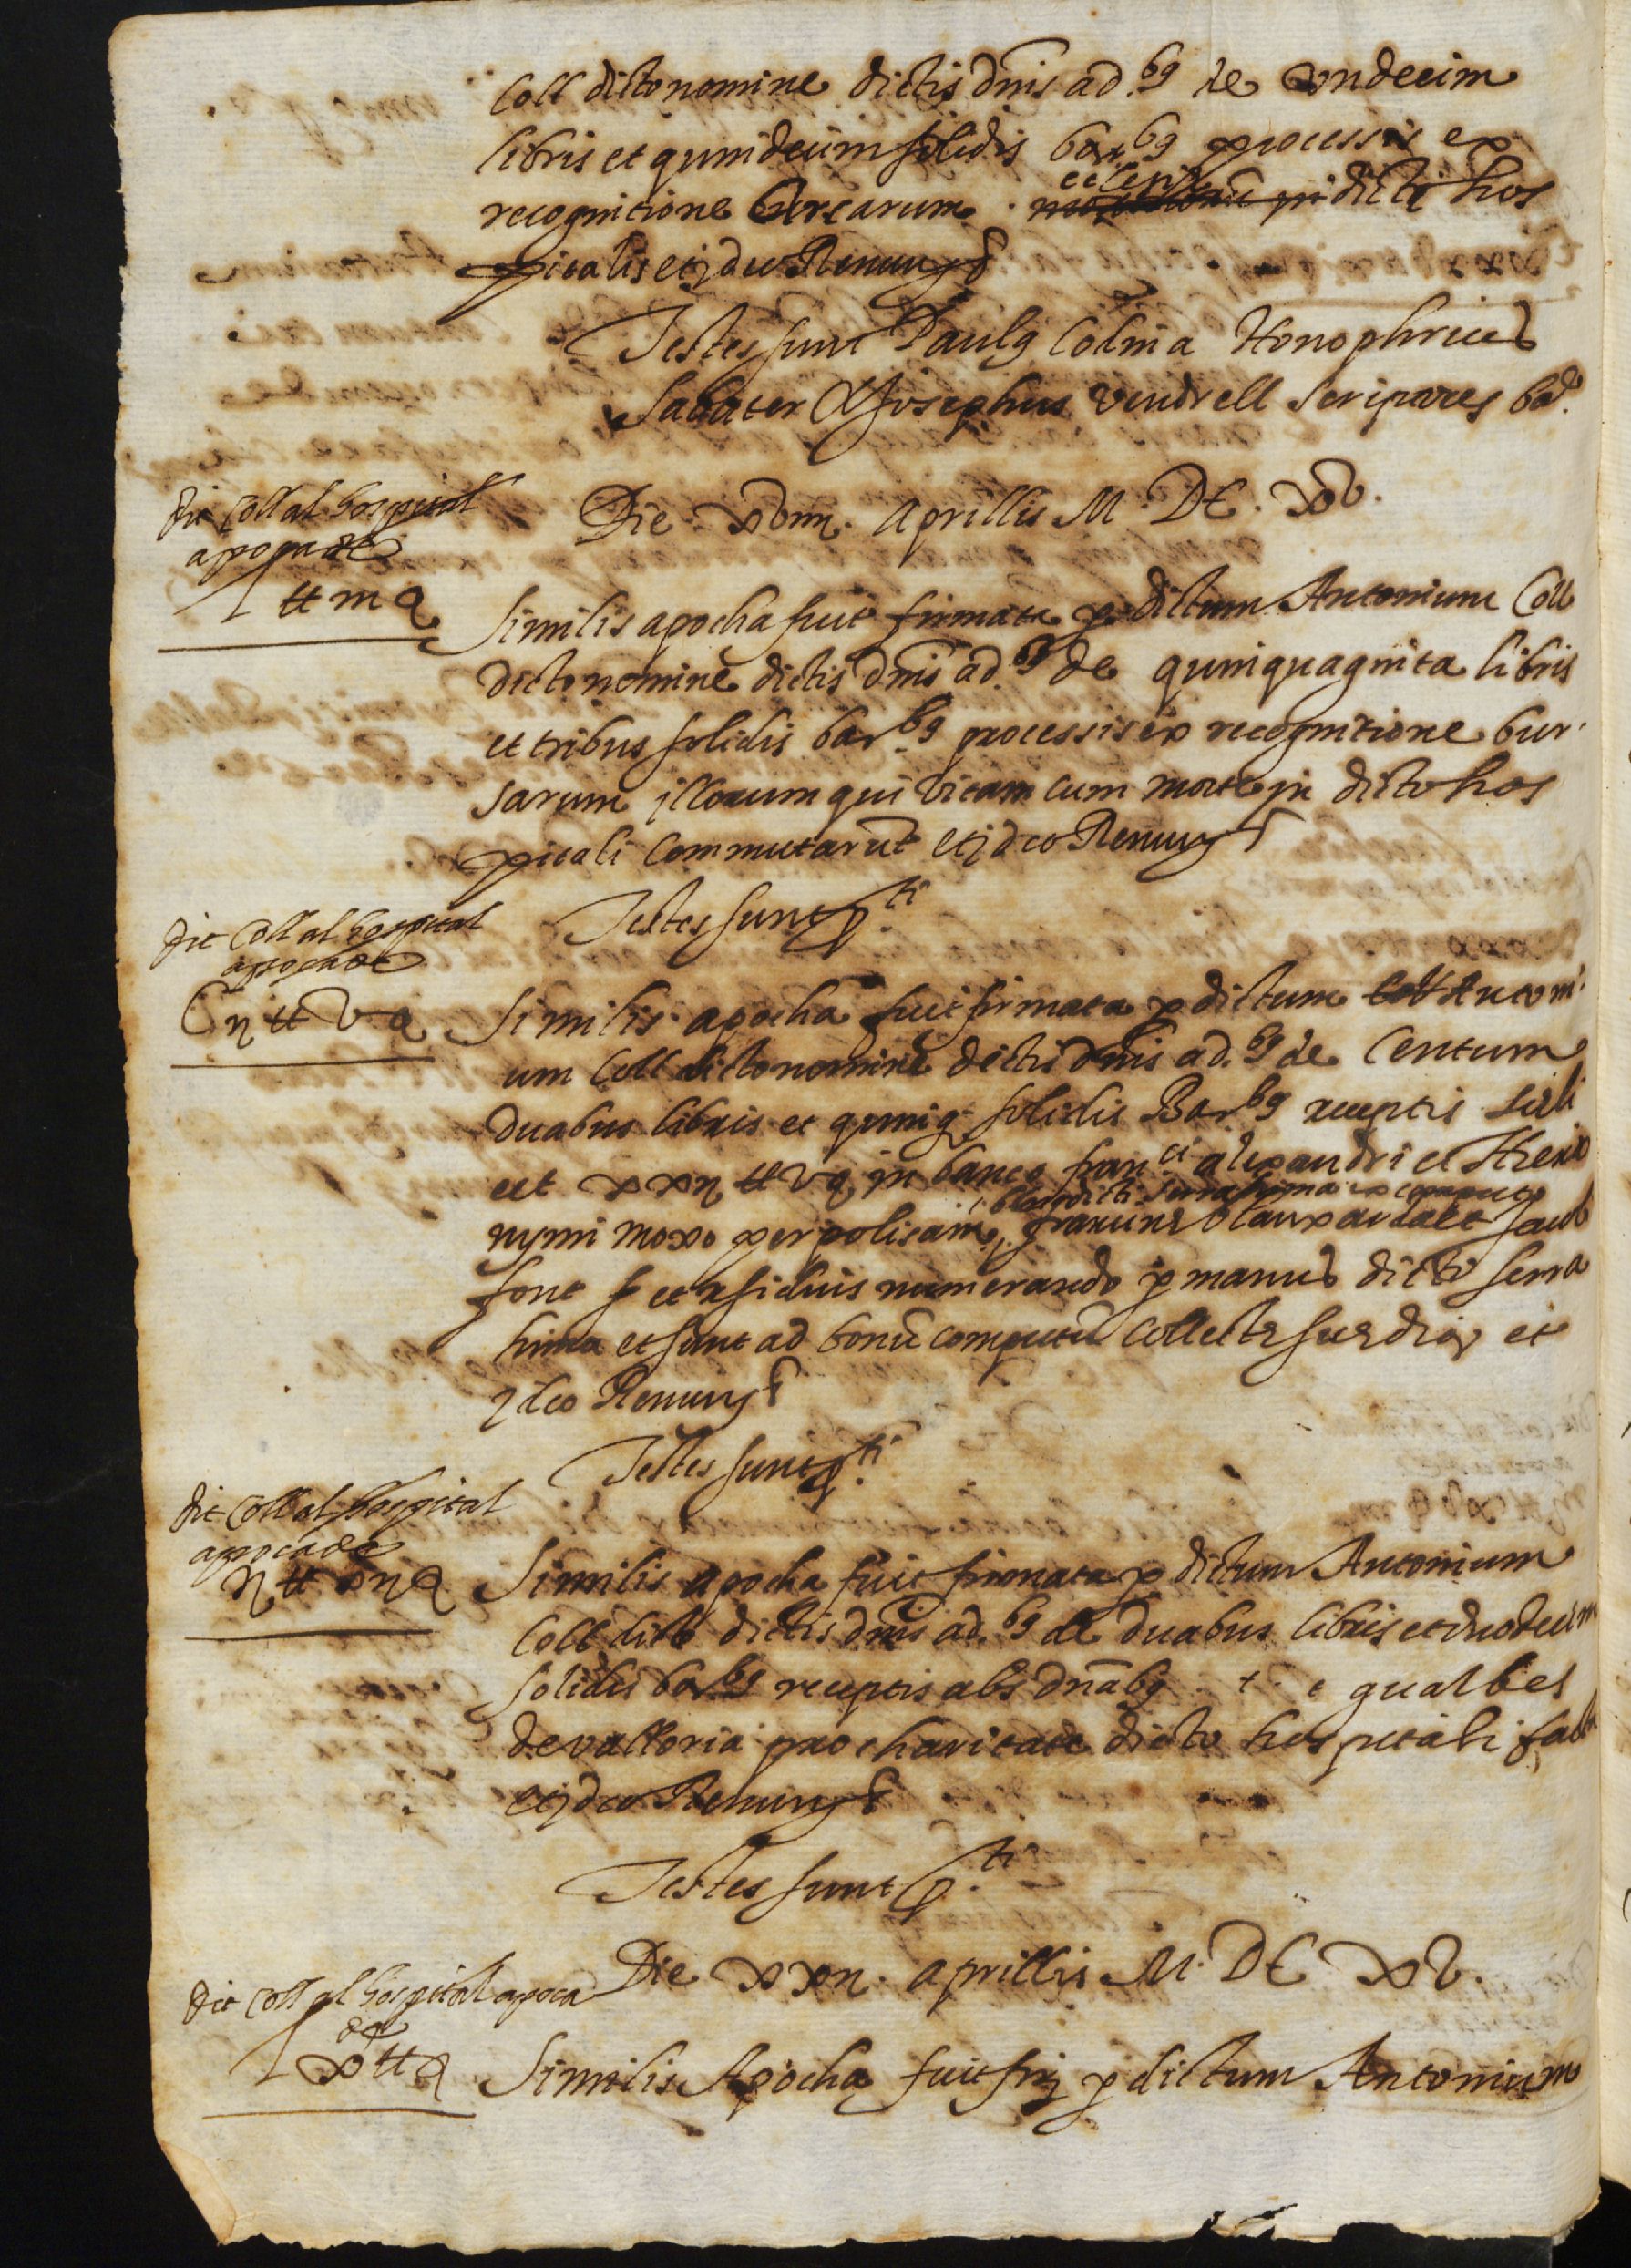 Coll dicto nomine dictis dnis ad.bg de undecim
libris et quindecim solidis bar.bg processis ex
recognitione bursarum dicti hos
pitalis et ideo Renun
Testes sunt Paulg Colina Honophrius
Sabater & Josephus Vendrell scriptores
Die xviii. Aprillis M. DC. xv.
dit Coll al hospital
apoca de
L tt iii s
Similis apocha fuit firmata p dictum Antonium Coll
dicto nomine dictis dnis ad.bg de quinquaginta libris
et tribus solidis bar.bg processis ex recognitione bur
sarum illorum qui vitam cum morte in dicto hos
pitali commutarut et ideo Renun
Testes sunt p.ti
dit Coll al hospital
apoca de
Cii tt v s
Similis apocha fuit firmata p dictum Coll Antoni
um Coll dicto nomine dictis dnis ad.bg de Centum
duabus libris et quinq solidis Bar.bg receptis
xxii tt v s in banco fran.ci alexandri et Hiero
nymi moxo per polisam
font et residuis numerando p manus dicti serra
hima et sunt ad bonu computu et
ideo Renun
Testes sunt p.ti
dit Coll al hospital
apoca de
ii tt xii s
Similis apocha fuit firmata p dictum Antonium
Coll dicto dictis dnis ad.bg de duabus libris et duodecim
solidis bar.bg receptis abs dna gualbes
de valloria pro charitate dicto hospitali facta
et ideo Renun
Testes sunt p.ti
Die xxii. Aprillis M. DC xv.
dit Coll al hospital apoca
de
L x tt s
Similis Apocha fuit fir p dictum Antonium